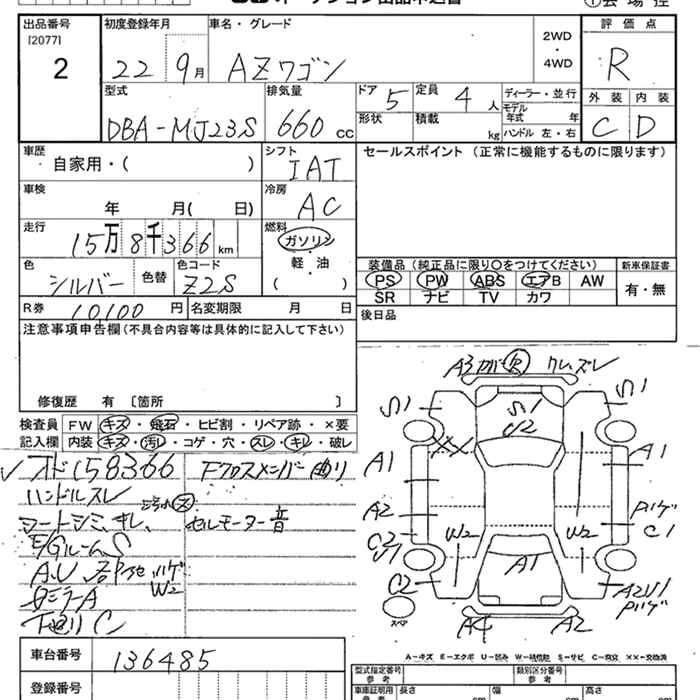 出品番号
[2077]
2
初度登録年月
22 9月
車名・グレード
AZワゴン
2WD
・
4WD
評価点
R
型式
DBA-MJ23S
排気量
660 cc
ドア 5
定員 4 人
形状
積載 kg
ディーラー・並行
モデル年式 年
ハンドル 左・右
外装 内装
C D
車歴
自家用・( )
シフト
IAT
セールスポイント (正常に機能するものに限ります)
車検
年 月( 日)
冷房
AC
走行
15万8千366 km
燃料
ガソリン
・
軽・油
( )
色
シルバー
色替
色コード
Z2S
装備品 (純正品に限り○をつけてください)
新車保証書
PS PW ABS エアB AW
SR ナビ TV カワ
有・無
R券 10,100 円
名変期限 月 日
後日品
注意事項申告欄(不具合内容等は具体的に記入して下さい)
修復歴 有 〔箇所 〕
検査員記入欄
FW キズ・飛石・ヒビ割・リペア跡・×要
内装 キズ・汚レ・コゲ・穴・スレ・キレ・破レ
オド158366
Fクロスメンバー曲り
ハンドルスレ
シートシミ、キレ、
セルモーター音
E/GルームS
W2
ミラーA
下廻りC
A3
S1
S1
U2
S1
A1
A1
A2
C1
C2
W2
W2
A1
C2
A4
A2
スペア
A-キズ E-エクボ U-凹み S-サビ C-腐食 ××-交換済
車台番号
136485
登録番号
型式指定番号
参考
類別区分番号
参考
車庫証明用
参考
長さ
幅
高さ